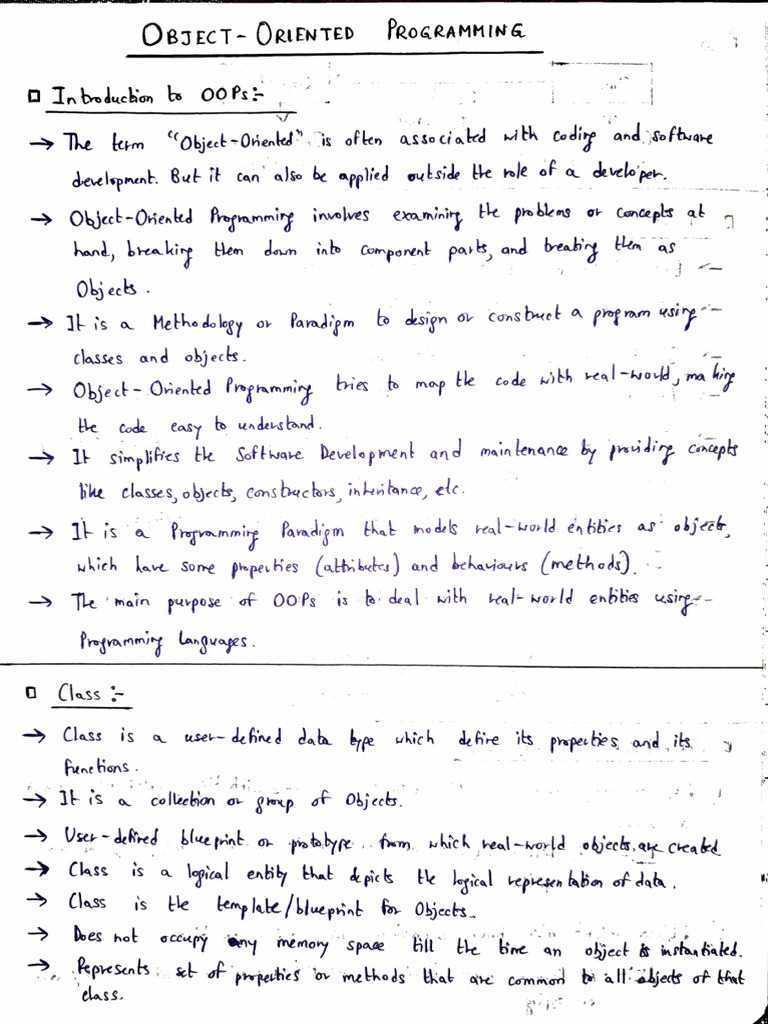 OBJECT-ORIENTED PROGRAMMING
Introduction to OOPs:-
→ The term "Object-Oriented" is often associated with coding and software
development. But it can also be applied outside the role of a developer.
→ Object-Oriented Programming involves examining the problems or concepts at
hand, breaking them down into component parts, and treating them as
Objects.
→ It is a Methodology or Paradigm to design or construct a program using
classes and objects.
→ Object-Oriented Programming tries to map the code with real-world, making
the code easy to understand.
→ It simplifies the Software Development and maintenance by providing concepts
like classes, objects, constructors, inheritance, etc.
→ It is a Programming Paradigm that models real-world entities as objects,
which have some properties (attributes) and behaviours (methods).
→ The main purpose of OOPs is to deal with real-world entities using
Programming Languages.
Class:-
→ Class is a user-defined data type which define its properties and its
functions.
→ It is a collection or group of Objects.
→ User-defined blueprint or prototype from which real-world objects are created
→ Class is a logical entity that depicts the logical representation of data.
→ Class is the template/blueprint for Objects.
→ Does not occupy any memory space till the time an object is instantiated.
→ Represents set of properties or methods that are common to all objects of that
class.